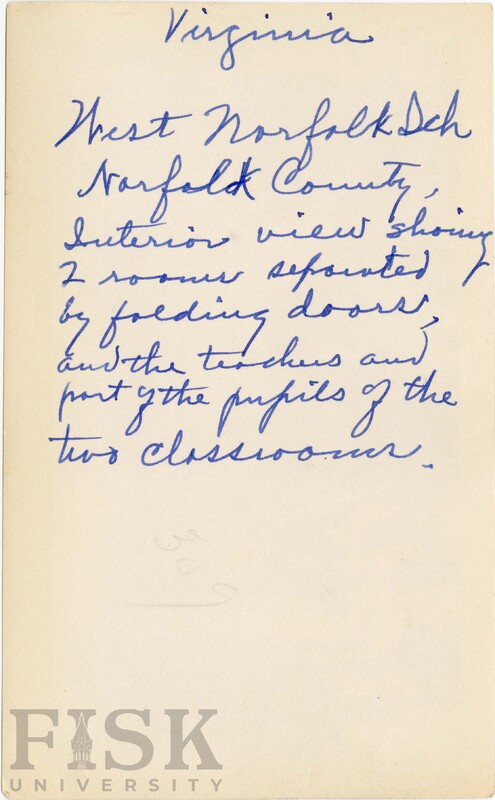 Virginia
West Norfolk Sch
Norfolk County,
Interior view shoing
2 rooms separated
by folding doors,
and the teachers and
part of the pupils of the
two classrooms.
FISK
UNIVERSITY